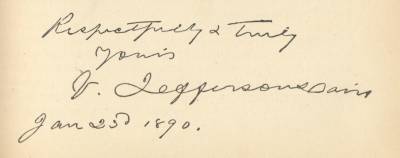 Respectfully & Truly
Yours
V. Jefferson Davis
Jan 23d 1890.